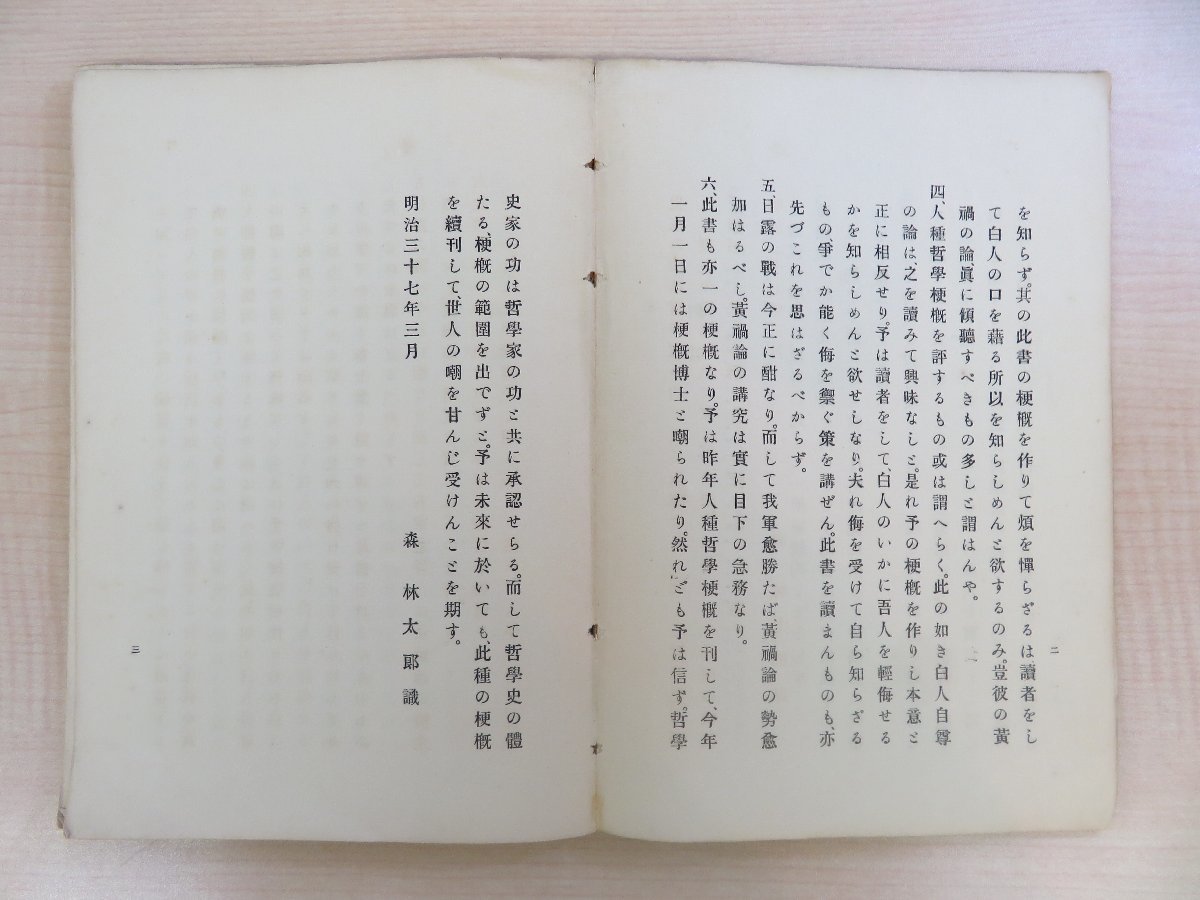 二
を知らず。其の此書の梗槪を作りて煩を憚らざるは讀者をし
て白人の口を藉る所以を知らしめんと欲するのみ。豈彼の黃
禍の論、眞に傾聽すべきもの多しと謂はんや。
四、人種哲學梗槪を評するもの或は謂へらく。此の如き白人自尊
の論は、之を讀みて興味なしと。是れ予の梗槪を作りし本意と
正に相反せり。予は讀者をして、白人のいかに吾人を輕侮せる
かを知らしめんと欲せしなり。夫れ侮を受けて自ら知らざる
もの、爭でか能く侮を禦ぐ策を講ぜん。此書を讀まんものも、亦
先づこれを思はざるべからず。
五、日露の戰は今正に酣なり。而して我軍愈勝たば、黃禍論の勢愈
加はるべし。黃禍論の講究は實に目下の急務なり。
六、此書も亦一の梗槪なり。予は昨年人種哲學梗槪を刊して、今年
一月一日には梗槪博士と嘲られたり。然れども予は信ず。哲學
史家の功は哲學家の功と共に承認せらる。而して哲學史の體
たる、梗槪の範圍を出でずと。予は未來に於いても、此種の梗槪
を續刊して、世人の嘲を甘んじ受けんことを期す。
明治三十七年三月
森林太郞識
三